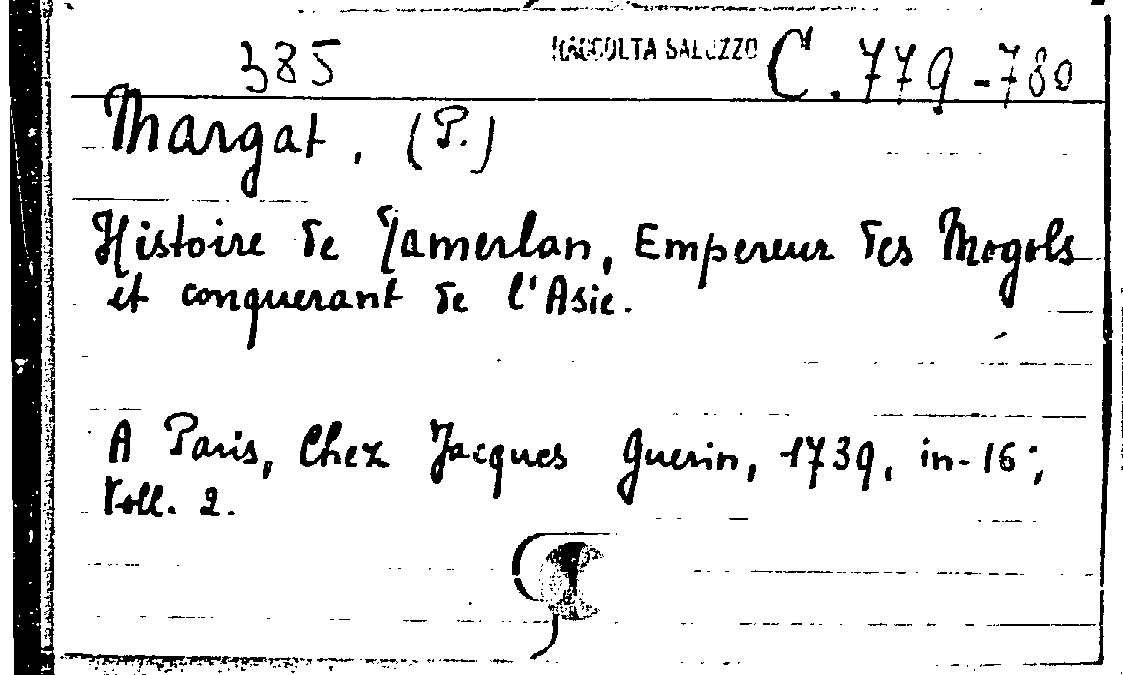 385 RACCOLTA SALUZZO C. 779-780
Margat, (P.)
Histoire de Tamerlan, Empereur des Mogols
et conquerant de l'Asie.
A Paris, Chez Jacques Guerin, 1739, in-16°,
Voll. 2.